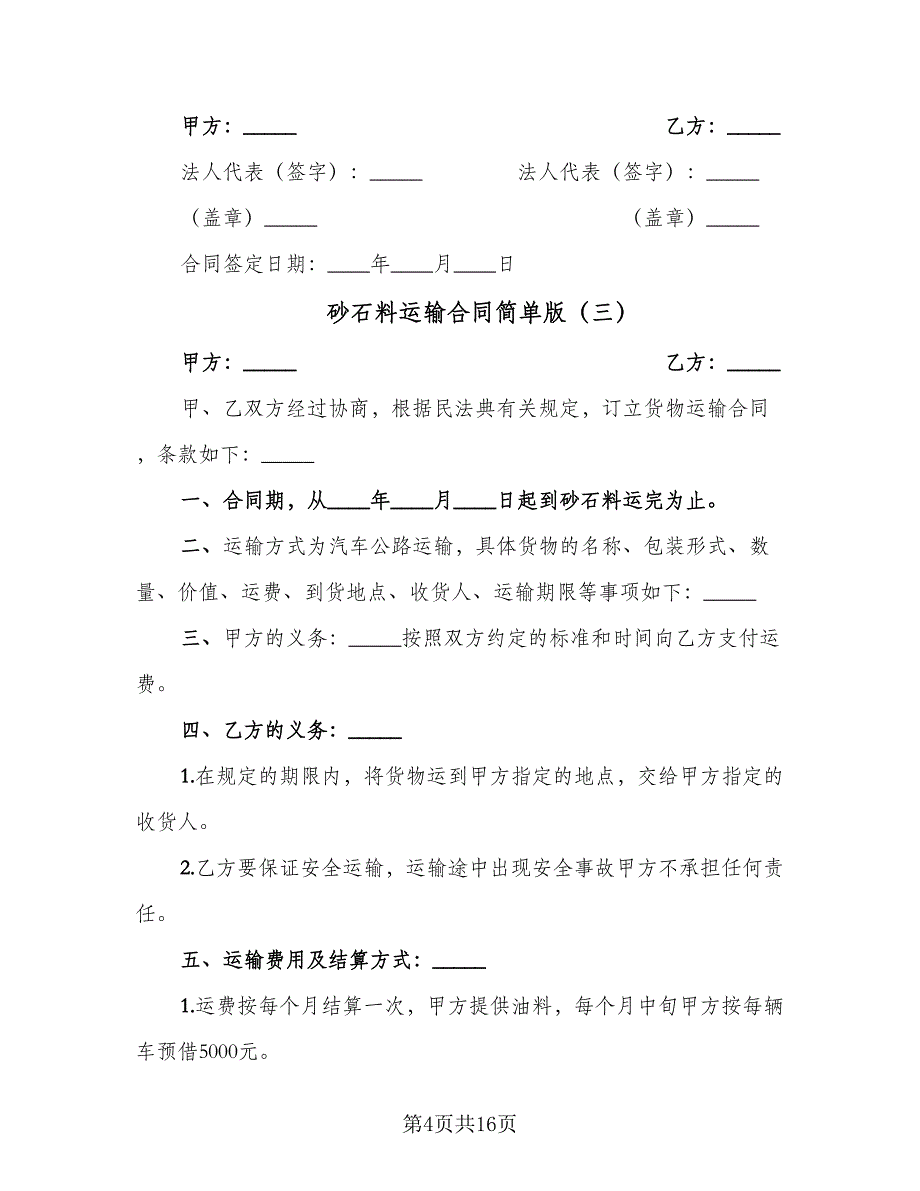 甲方：_____ 乙方：_____
法人代表（签字）：_____ 法人代表（签字）：_____
（盖章）_____ （盖章）_____
合同签定日期：____年____月____日
砂石料运输合同简单版（三）
甲方：_____ 乙方：_____
甲、乙双方经过协商，根据民法典有关规定，订立货物运输合同
，条款如下：_____
一、合同期，从____年____月____日起到砂石料运完为止。
二、运输方式为汽车公路运输，具体货物的名称、包装形式、数
量、价值、运费、到货地点、收货人、运输期限等事项如下：_____
三、甲方的义务：_____按照双方约定的标准和时间向乙方支付运
费。
四、乙方的义务：_____
1.在规定的期限内，将货物运到甲方指定的地点，交给甲方指定的
收货人。
2.乙方要保证安全运输，运输途中出现安全事故甲方不承担任何责
任。
五、运输费用及结算方式：_____
1.运费按每个月结算一次，甲方提供油料，每个月中旬甲方按每辆
车预借5000元。
第4页共16页